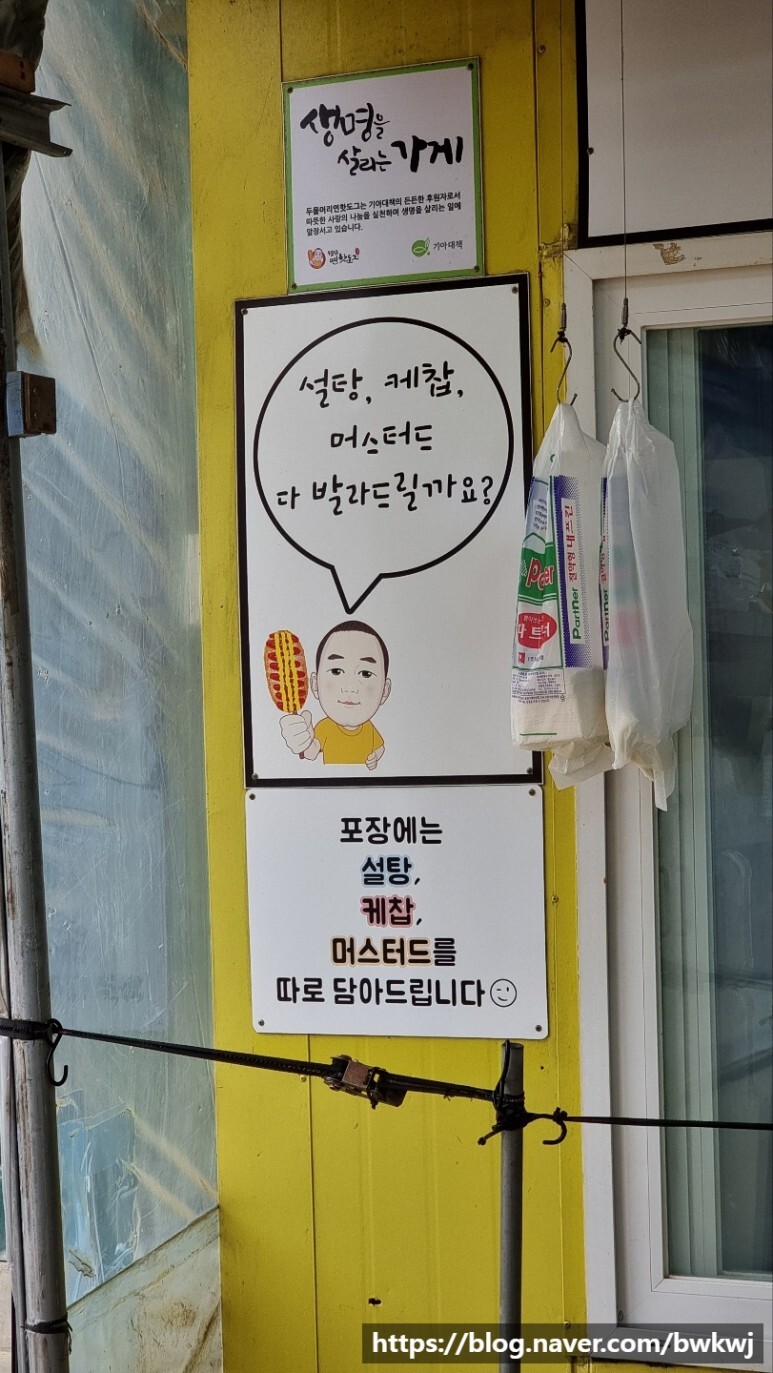 생명을
살리는 가게
두물머리연핫도그는 기아대책의 든든한 후원자로서
따뜻한 사랑의 나눔을 실천하며 생명을 살리는 일에
앞장서고 있습니다.
연핫도그
기아대책
설탕, 케찹,
머스터드
다 발라드릴까요?
Partner
파트너
Partner
포장에는
설탕,
케찹,
머스터드를
따로 담아드립니다
https://blog.naver.com/bwkwj